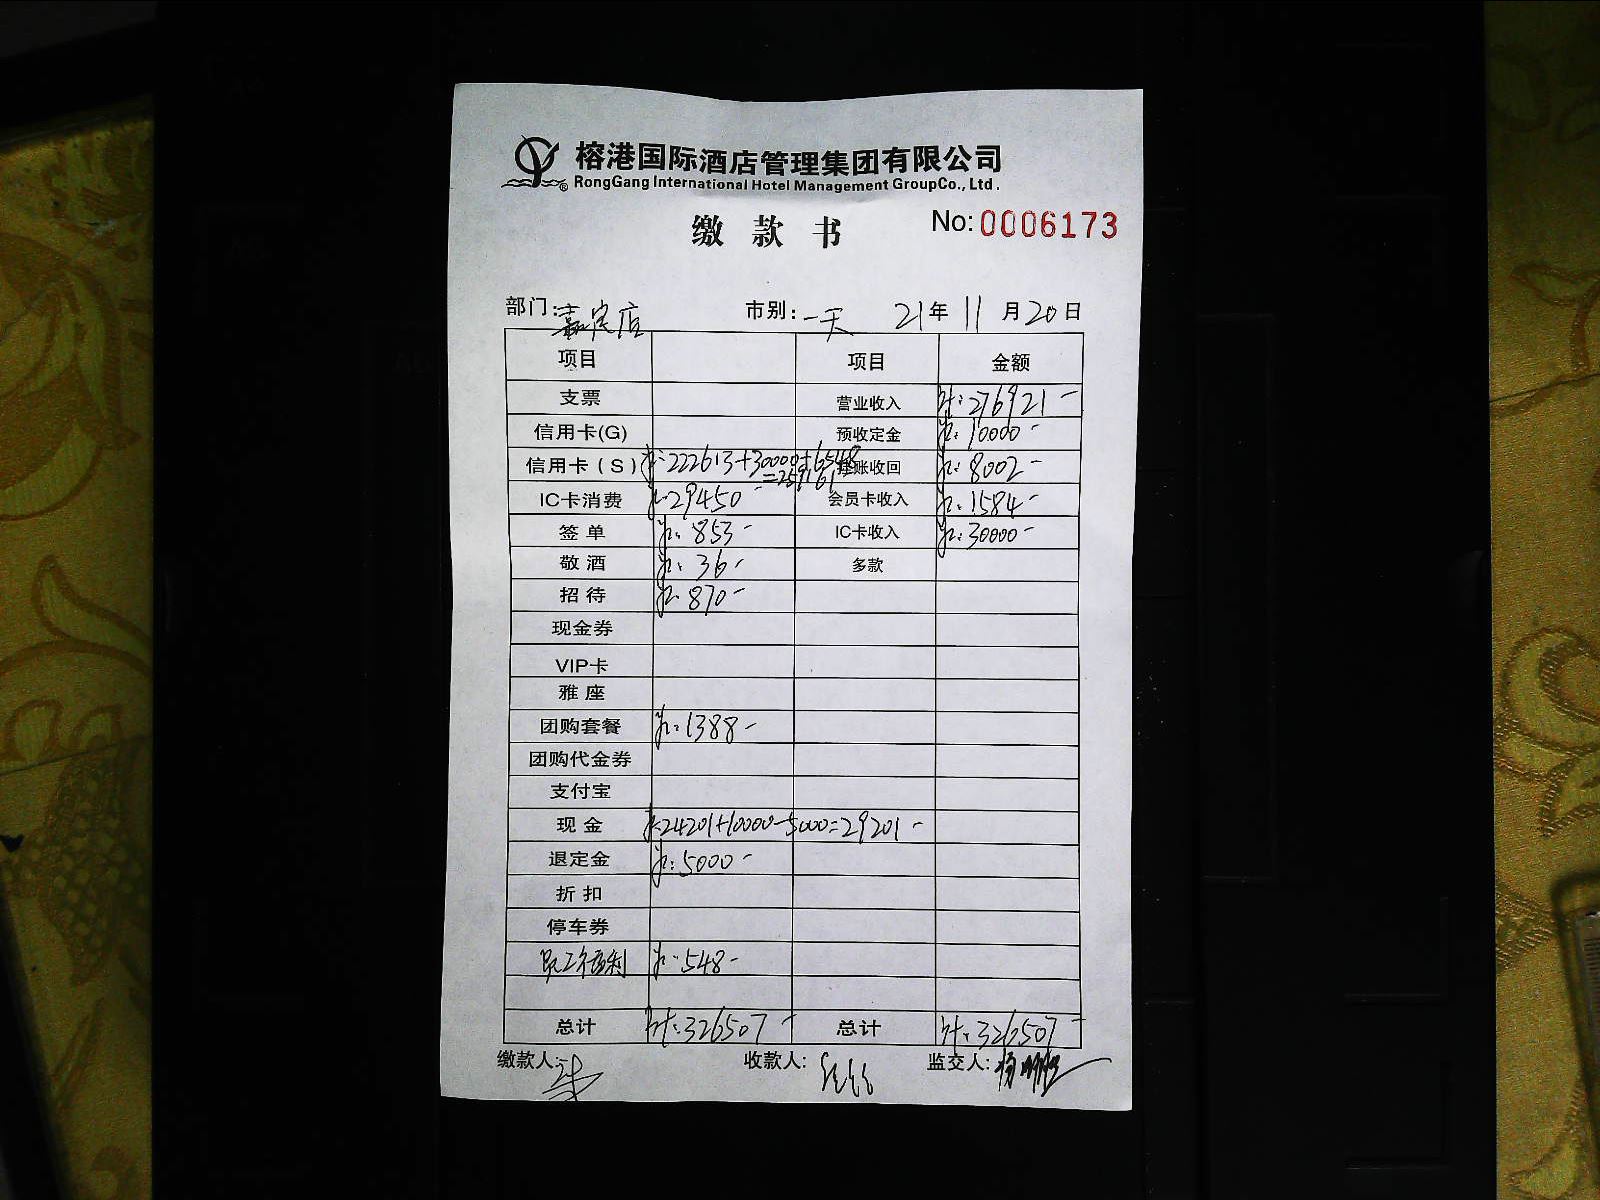 榕港国际酒店管理集团有限公司
RongGang International Hotel Management GroupCo., Ltd.
缴款书 No: 0006173
部门: 嘉宾店 市别: 一天 21年11月20日
项目 项目 金额
支票 营业收入 计: 276921-
信用卡(G) 预收定金 10000-
信用卡(S) 222613+30000+6548=259161 挂账收回 8002-
IC卡消费 29450- 会员卡收入 1584-
签单 853- IC卡收入 30000-
敬酒 36- 多款
招待 870-
现金券
VIP卡
雅座
团购套餐 1388-
团购代金券
支付宝
现金 24201+10000-5000=29201-
退定金 5000-
折扣
停车券
员工福利 548-
总计 计: 326507- 总计 计: 326507-
缴款人: 收款人: 监交人: